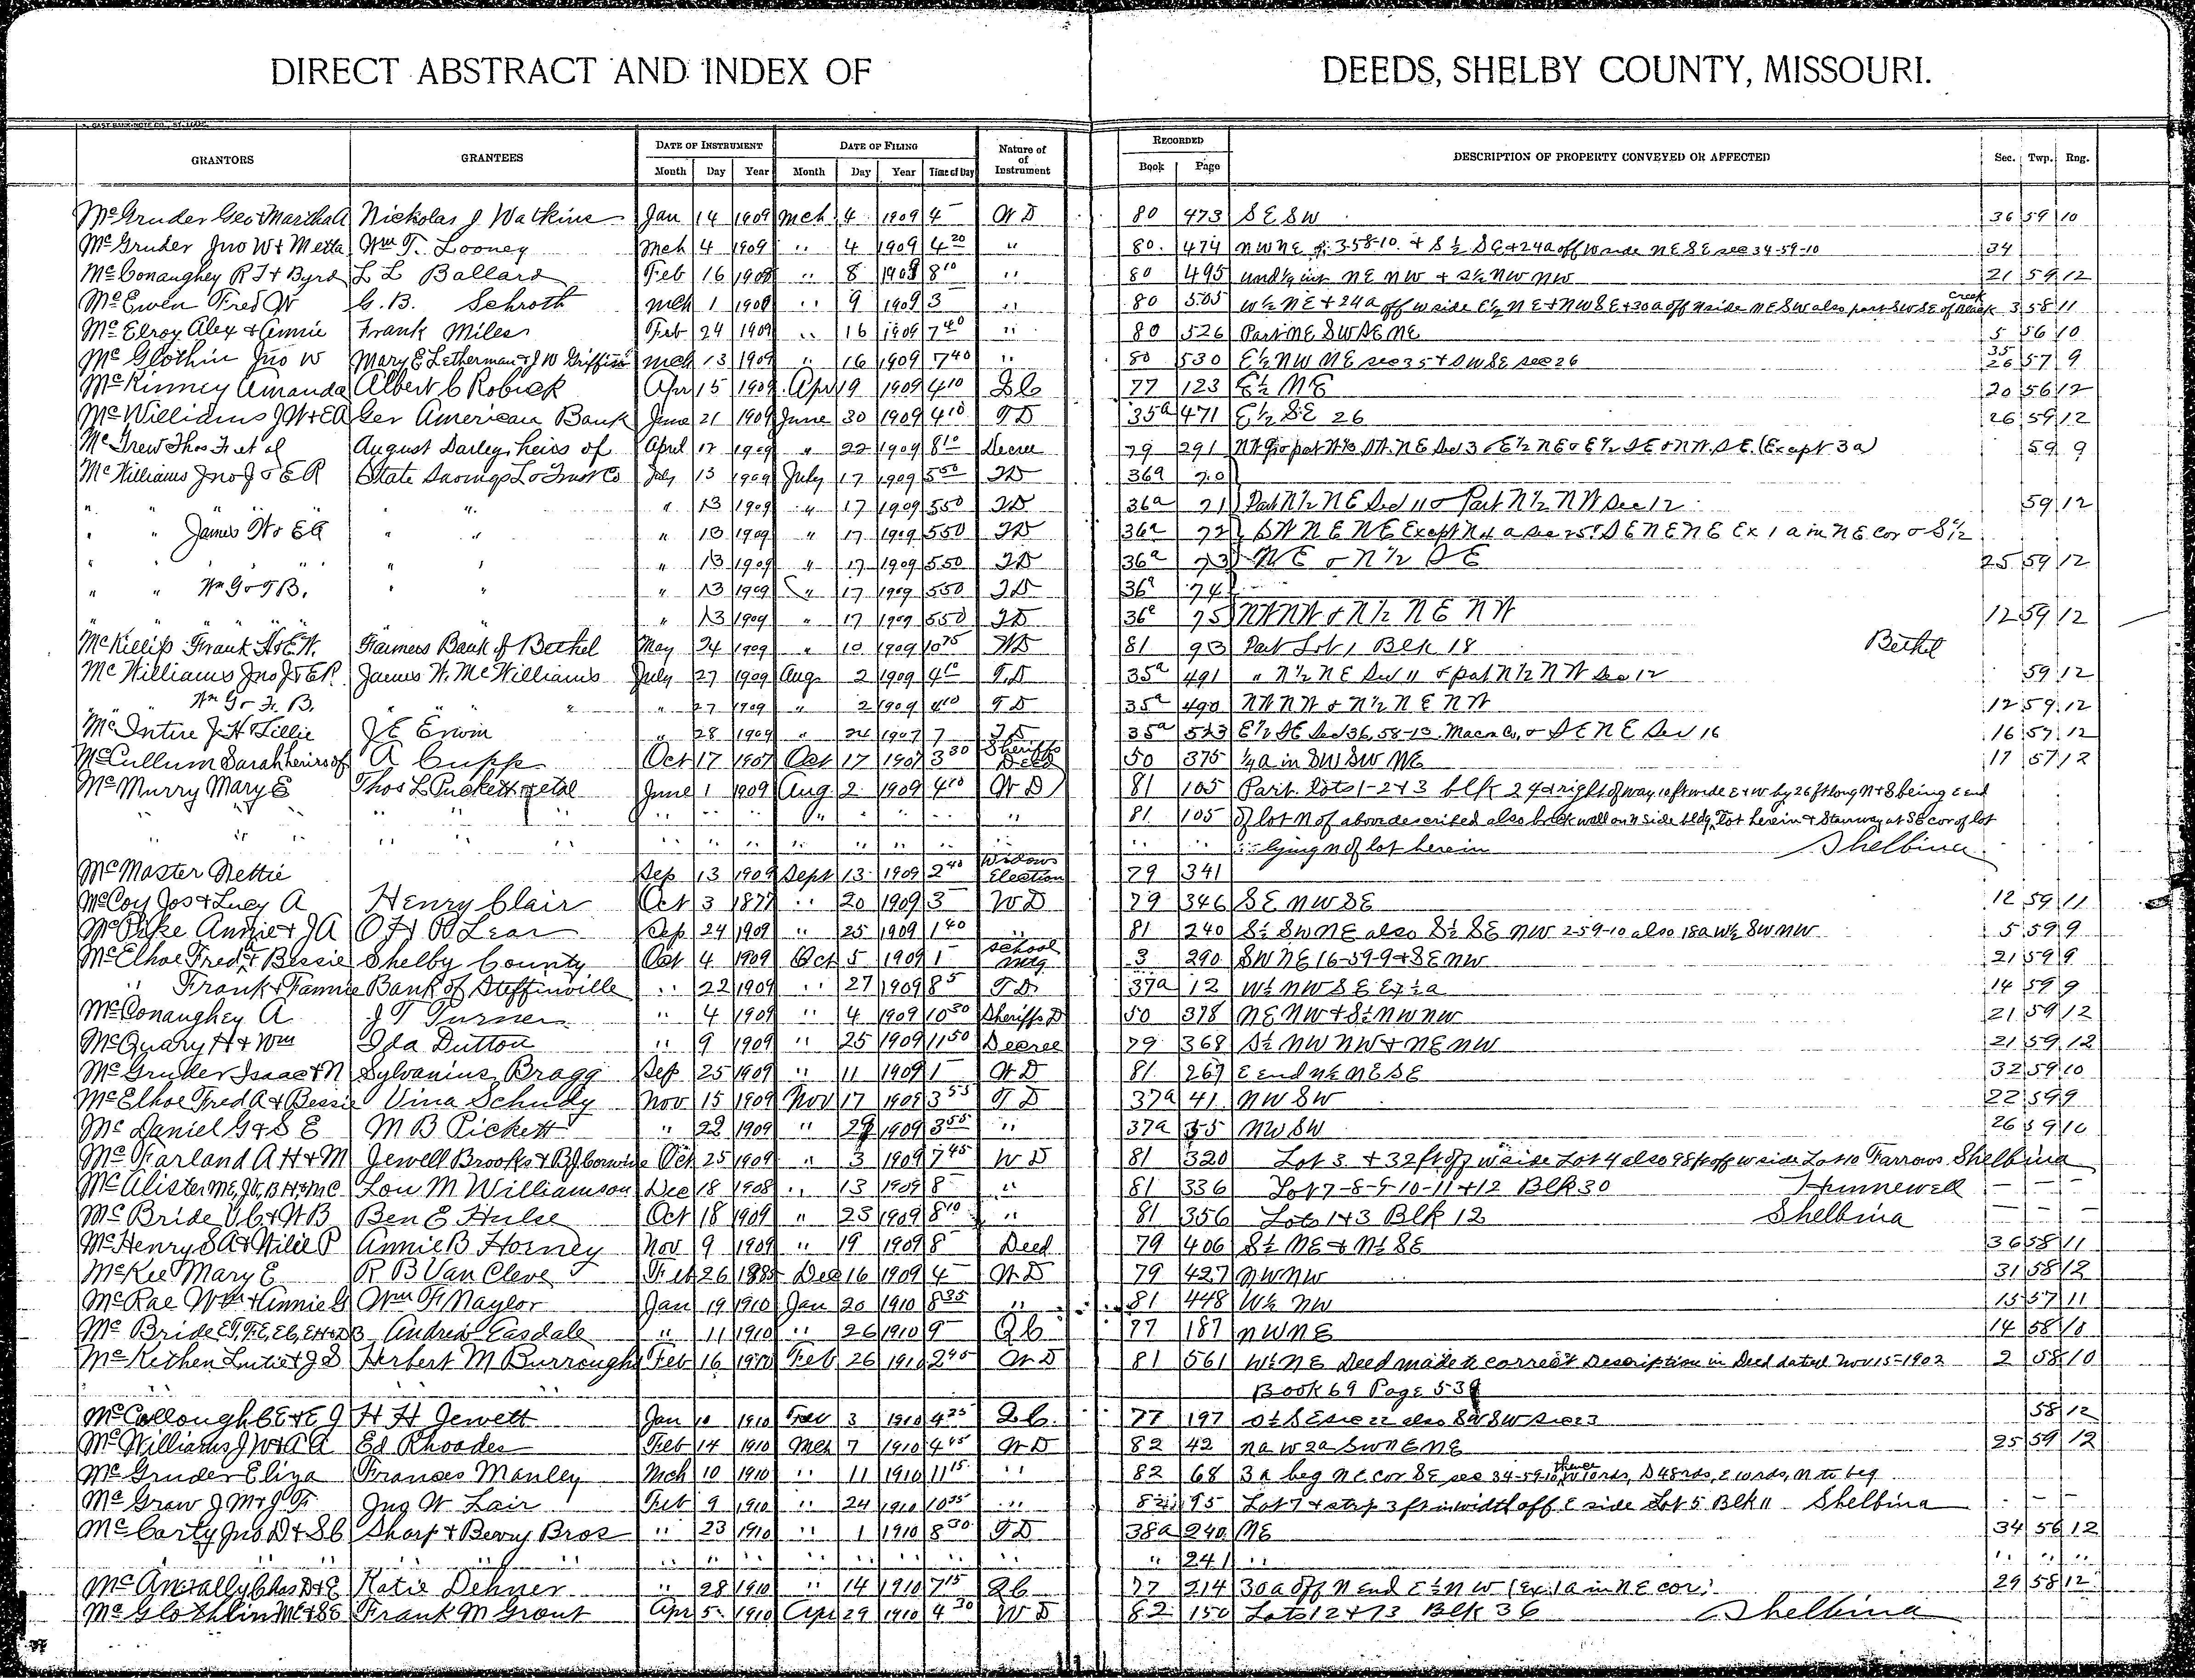 DIRECT ABSTRACT AND INDEX OF DEEDS, SHELBY COUNTY, MISSOURI.
GRANTORS GRANTEES DATE OF INSTRUMENT DATE OF FILING Nature of of Instrument RECORDED DESCRIPTION OF PROPERTY CONVEYED OR AFFECTED Sec. Twp. Rng.
Month Day Year Month Day Year Time of Day Book Page
McGruder Geo & Martha A Nickolas J Watkins Jan 14 1909 Mch 4 1909 4 WD 80 473 SE SW 36 59 10
McGruder Jno W & Metta Wm T. Looney Mch 4 1909 " 4 1909 4 20 " 80 474 NW NE of 3-58-10 & S ½ SE & 24a off W side NE SE sec 34-59-10 34
McConaughey R J & Byrd L L Ballard Feb 16 1909 " 8 1909 8 10 " 80 495 und ½ int NE NW & S½ NW NW 21 59 12
McEwen Fred W G. B. Schroth Mch 1 1909 " 9 1909 3 " 80 505 W ½ NE & 24a off W side E½ NE & NW SE & 30a off N side NE SW also part SW SE of Creek 3 58 11
McElroy Alex & Annie Frank Miles Feb 24 1909 " 16 1909 7 40 " 80 526 Part NE SW SE NE 5 56 10
McGlothin Jno W Mary E Letherman & J W Griffin Mch 13 1909 " 16 1909 7 40 " 80 530 E½ NW NE sec 35 & SW SE sec 26 35 26 57 9
McKinney Amanda Albert C Robick Apr 15 1909 Apr 19 1909 4 10 QC 77 123 E½ NE 20 56 12
McWilliams J W & EA Ger American Bank June 21 1909 June 30 1909 4 10 TD 35a 471 E½ SE 26 26 59 12
McGrew Thos F et al August Darley, heirs of April 17 1909 " 22 1909 8 10 Decree 79 291 Sec 3 E½ NE & E½ SE & NW SE (Except 3a) 59 9
McWilliams Jno J & E R State Savings L & Trust Co July 13 1909 July 17 1909 5 50 TD 36a 70
" " " " " 13 1909 " 17 1909 550 TD 36a 71 Part N½ NE Sec 11 & Part N½ NW Sec 12 59 12
" " James W & EA " " " 13 1909 " 17 1909 550 TD 36a 72 SW NE NE Except N 4 a Sec 25 & SE NE NE Ex 1 a in NE cor & S½
" " " " " 13 1909 " 17 1909 550 TD 36a 73 NE & N½ SE 25 59 12
" " Wm G & F B. " " " 13 1909 " 17 1909 550 TD 36a 74
" " " " " 13 1909 " 17 1909 550 TD 36a 75 NW NW & N½ NE NW 12 59 12
McKillip Frank H & E.W. Farmers Bank of Bethel May 24 1909 " 10 1909 WD 81 93 Part Lot 1 Blk 18 Bethel
McWilliams Jno J & E R. James W. McWilliams July 27 1909 Aug 2 1909 4 10 T.D 35a 491 " N½ NE Sec 11 & part N½ NW Sec 12 59 12
" Wm G & F. B. " " " 27 1909 " 2 1909 4 10 TD 35a 490 NW NW & N½ NE NW 12 59 12
McIntire J. H Tillie J E Erwin " 28 1909 " 24 1909 7 TD 35a 523 E½ SE Sec 36, 58-13 Macon Co, & SE NE Sec 16 16 57 12
McCullum Sarah heirs of A Cupp Oct 17 1907 Oct 17 1907 3 30 Sheriffs Deed 50 375 ¼ a in SW SW NE 17 57 12
McMurry Mary E Thos L Puckett et al June 1 1909 Aug 2 1909 4 10 WD 81 105 Part Lots 1-2 & 3 blk 24 & right of way 10 ft wide E & W by 26 ft long N & S being E end
" " " " " " " " 81 105 of lot N of above described also brick wall on N side bldg, Lot herein & Stairway at SE cor of lot
" " " " " " " " lying N of lot herein Shelbina
McMaster Nettie Sep 13 1909 Sept 13 1909 2 40 Widows Election 79 341
McCoy Jos & Lucy A Henry Clair Oct 3 1877 " 20 1909 3 WD 79 346 SE NW SE 12 59 11
McPike Annie & J A O H P Lear Sep 24 1909 " 25 1909 1 40 " 81 240 S½ SW NE also S½ SE NW 2-59-10 also 18a W½ SW NW 5 59 9
McElhoe Fred A & Bessie Shelby County Oct 4 1909 Oct 5 1909 1 School Mtg 3 290 SW NE 16-59-9 & SE NW 21 59 9
" Frank & Fannie Bank of Steffinville " 22 1909 " 27 1909 8 5 TD 37a 12 W½ NW SE Ex ½ a 14 59 9
McConaughey A J T Turner " 4 1909 " 4 1909 10 30 Sheriffs D 50 378 NE NW & S½ NW NW 21 59 12
McQuary H & Wm Ida Dutton " 9 1909 " 25 1909 11 50 Decree 79 368 S½ NW NW & NE NW 21 59 12
McGruder Isaac & N Sylvanius Bragg Sep 25 1909 " 11 1909 1 WD 81 267 E end N½ NE SE 32 59 10
McElhoe Fred A & Bessie Vina Schudy Nov 15 1909 Nov 17 1909 3 55 TD 37a 41 NW SW 22 59 9
McDaniel G & S E M B Pickett " 22 1909 " 29 1909 3 55 " 37a 55 NW SW 26 59 10
McFarland A H & M Jewell Brooks & B J Oct 25 1909 " 3 1909 7 45 WD 81 320 Lot 3 & 32 ft off W side Lot 4 also 98 ft off W side Lot 10 Farrows Shelbina
McAlister ME, JW, BH, & MC Lou M Williamson Dec 18 1908 " 13 1909 8 " 81 336 Lot 7-8-9-10-11 & 12 Blk 30 Hunnewell
McBride V C & W B Ben E Hulse Oct 18 1909 " 23 1909 8 10 " 81 356 Lots 1 & 3 Blk 12 Shelbina
McHenry S A & Wilie P Annie B Horney Nov 9 1909 " 19 1909 8 Deed 79 406 S½ NE & N½ SE 36 58 11
McKee Mary E R B Van Cleve Feb 26 Dec 16 1909 4 WD 79 427 NW NW 31 58 12
McRae Wm & Annie G Wm F Naylor Jan 19 1910 Jan 20 1910 8 35 " 81 448 W½ NW 15 57 11
McBride Andrew Easdale " 11 1910 " 26 1910 9 QC 77 187 NW NE 14 58 10
McKethen Lutie & J S Herbert M Burroughs Feb 16 1910 Feb 26 1910 2 45 WD 81 561 W½ NE Deed made to correct Description in Deed dated Nov 15-1902 2 58 10
" " Book 69 Page 539
McCollough C E & E J H H Jewett Jan 10 1910 Feb 3 1910 4 25 QC 77 197 S½ SE sec 22 also SW SW sec 23 58 12
McWilliams J W & A A Ed Rhoades Feb 14 1910 Mch 7 1910 4 45 WD 82 42 NE NE 25 59 12
McGruder Eliza Frances Manley Mch 10 1910 " 11 1910 11 15 " 82 68 3a beg NE cor SE sec 34-59-10, thence W 10 rds, S 48 rds, E 10 rds, N to beg
McGraw J M & J F Jno W Lair Feb 9 1910 " 24 1910 10 35 " 82 95 Lot 7 & strip 3 ft in width off E side Lot 5 Blk 11 Shelbina
McCarty Jno D & S C Sharp & Berry Bros " 23 1910 " 1 1910 8 30 TD 38a 240 NE 34 56 12
" " " " " " " " " " 241 " " " "
McAnnally Chas D & E Katie Dehner " 28 1910 " 14 1910 7 15 QC 77 214 30a off N end E½ NW (Ex 1a in NE cor) 29 58 12
McGlothlin MC & SE Frank M Grout Apr 5 1910 Apr 29 1910 4 30 WD 82 150 Lots 12 & 13 Blk 36 Shelbina